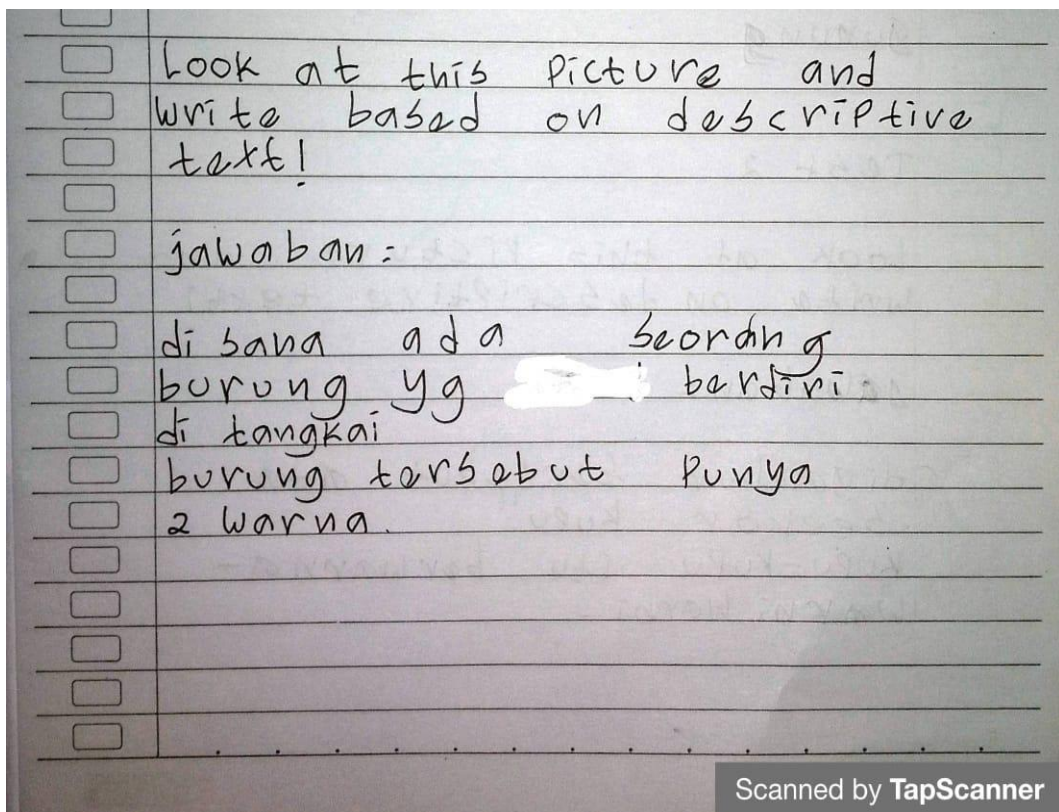 Look at this Picture and
write based on descriptive
text!
jawaban:
di sana ada seorang
burung yg berdiri
di tangkai
burung tersebut Punya
2 warna.
Scanned by TapScanner